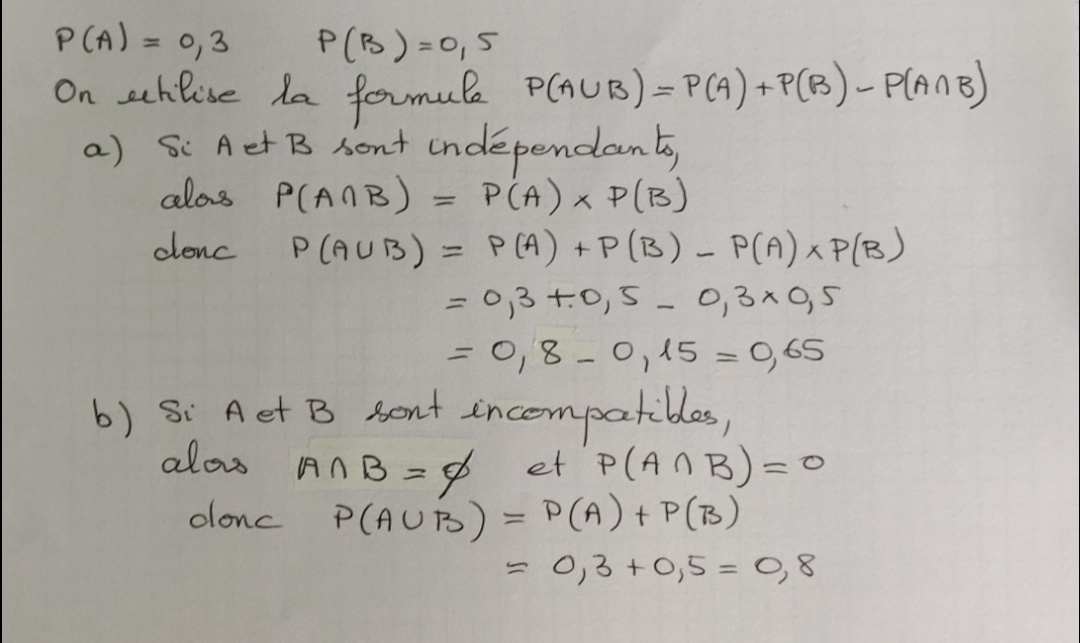 P(A) = 0,3 P(B) = 0,5
On utilise la formule P(A∪B) = P(A) + P(B) - P(A∩B)
a) Si A et B sont indépendants,
alors P(A∩B) = P(A) × P(B)
donc P(A∪B) = P(A) + P(B) - P(A) × P(B)
= 0,3 + 0,5 - 0,3 × 0,5
= 0,8 - 0,15 = 0,65
b) Si A et B sont incompatibles,
alors A∩B = ∅ et P(A∩B) = 0
donc P(A∪B) = P(A) + P(B)
= 0,3 + 0,5 = 0,8